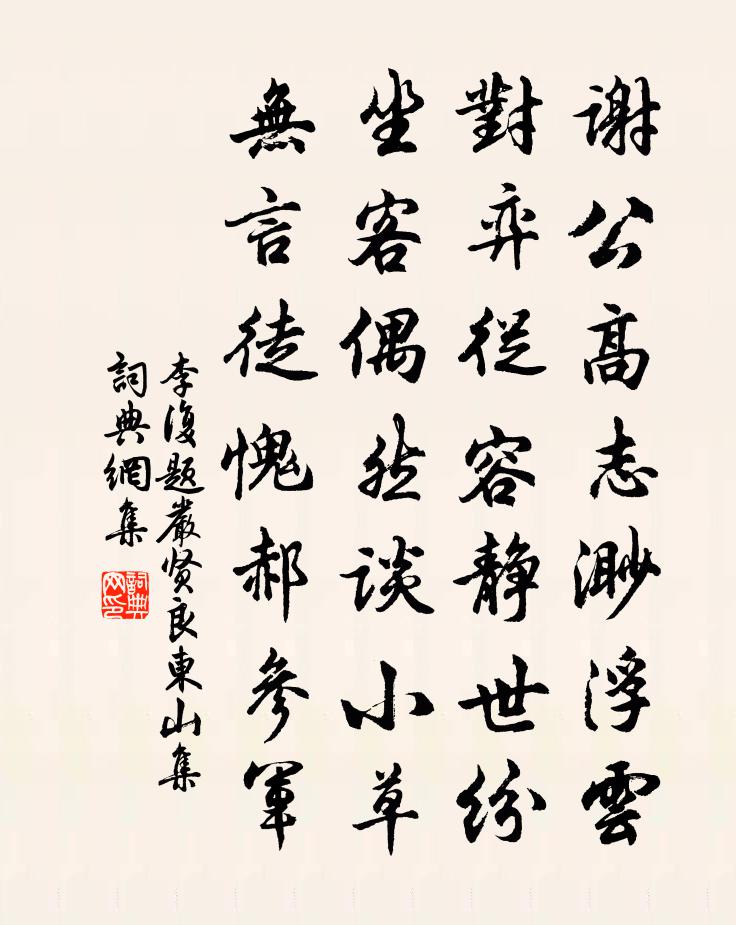 謝公高志渺浮雲
對弈從容靜世紛
坐客偶然談小草
無言徒愧郝參軍
李復題嚴賢良東山集
詞典網集
詞典网印